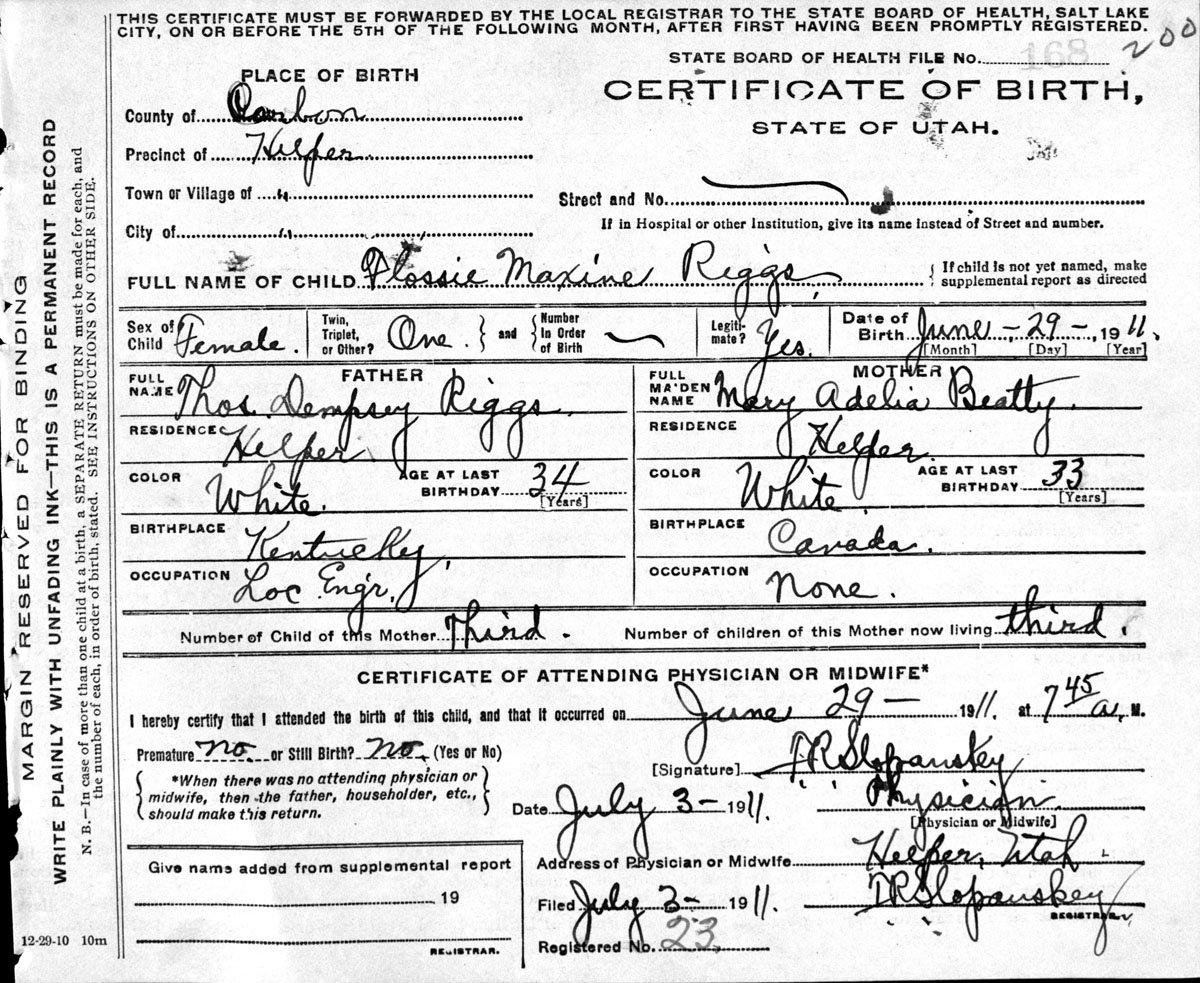 THIS CERTIFICATE MUST BE FORWARDED BY THE LOCAL REGISTRAR TO THE STATE BOARD OF HEALTH, SALT LAKE
CITY, ON OR BEFORE THE 5TH OF THE FOLLOWING MONTH, AFTER FIRST HAVING BEEN PROMPTLY REGISTERED.
200
STATE BOARD OF HEALTH FILE No. 168
CERTIFICATE OF BIRTH,
STATE OF UTAH.
PLACE OF BIRTH
County of Carbon
Precinct of Helper
Town or Village of "
City of "
Street and No.
If in Hospital or other Institution, give its name instead of Street and number.
FULL NAME OF CHILD Flossie Maxine Riggs
{ If child is not yet named, make
supplemental report as directed
Sex of Child Female.
Twin, Triplet, or Other? One. } and { Number In Order of Birth
Legitimate? Yes.
Date of Birth June - 29 - , 1911.
[Month] [Day] [Year]
FATHER
FULL NAME Thos. Dempsey Riggs
RESIDENCE Helper
COLOR White. AGE AT LAST BIRTHDAY 34
[Years]
BIRTHPLACE Kentucky,
OCCUPATION Loc. Engr.
MOTHER
FULL MAIDEN NAME Mary Adelia Beatty.
RESIDENCE Helper.
COLOR White. AGE AT LAST BIRTHDAY 33
[Years]
BIRTHPLACE Canada.
OCCUPATION None.
Number of Child of this Mother Third. Number of children of this Mother now living third.
CERTIFICATE OF ATTENDING PHYSICIAN OR MIDWIFE*
I hereby certify that I attended the birth of this child, and that it occurred on June 29 - 1911. at 7 45 a. M.
Premature no. or Still Birth? No. (Yes or No)
{ *When there was no attending physician or
midwife, then the father, householder, etc.,
should make this return. }
[Signature] Slopansky
Date July 3 - 1911. Physician
[Physician or Midwife]
Address of Physician or Midwife Helper, Utah
Filed July 3 - 1911. Slopanskey
REGISTRAR.
Registered No. 23
Give name added from supplemental report
19
REGISTRAR.
12-29-10 10m
MARGIN RESERVED FOR BINDING
WRITE PLAINLY WITH UNFADING INK—THIS IS A PERMANENT RECORD
N. B.—In case of more than one child at a birth, a SEPARATE RETURN must be made for each, and
the number of each, in order of birth, stated. SEE INSTRUCTIONS ON OTHER SIDE.